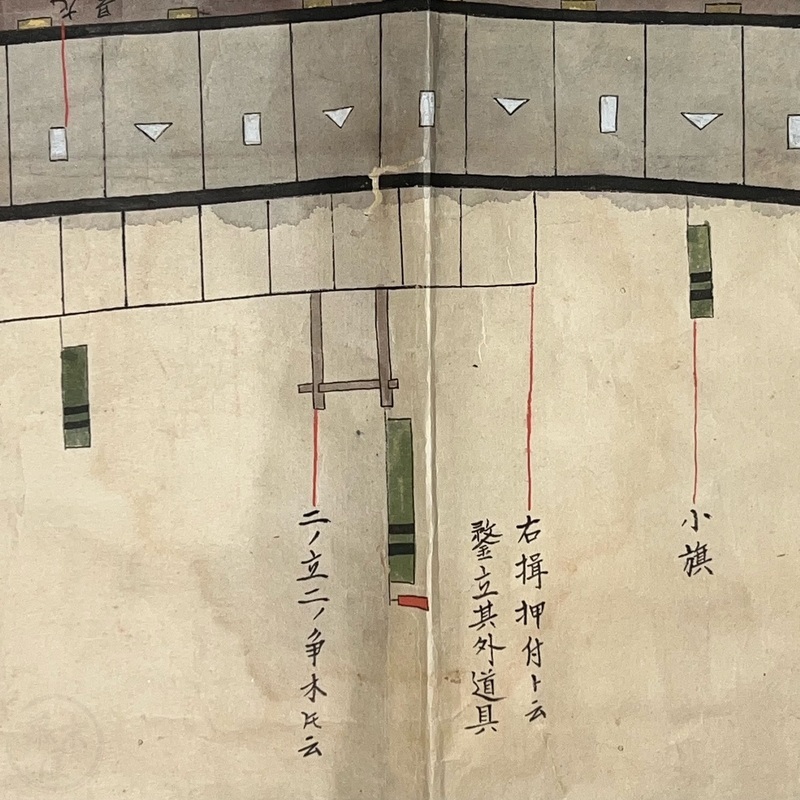 小旗
右揖押付ト云
立其外道具
二ノ立二ノ争木トモ云